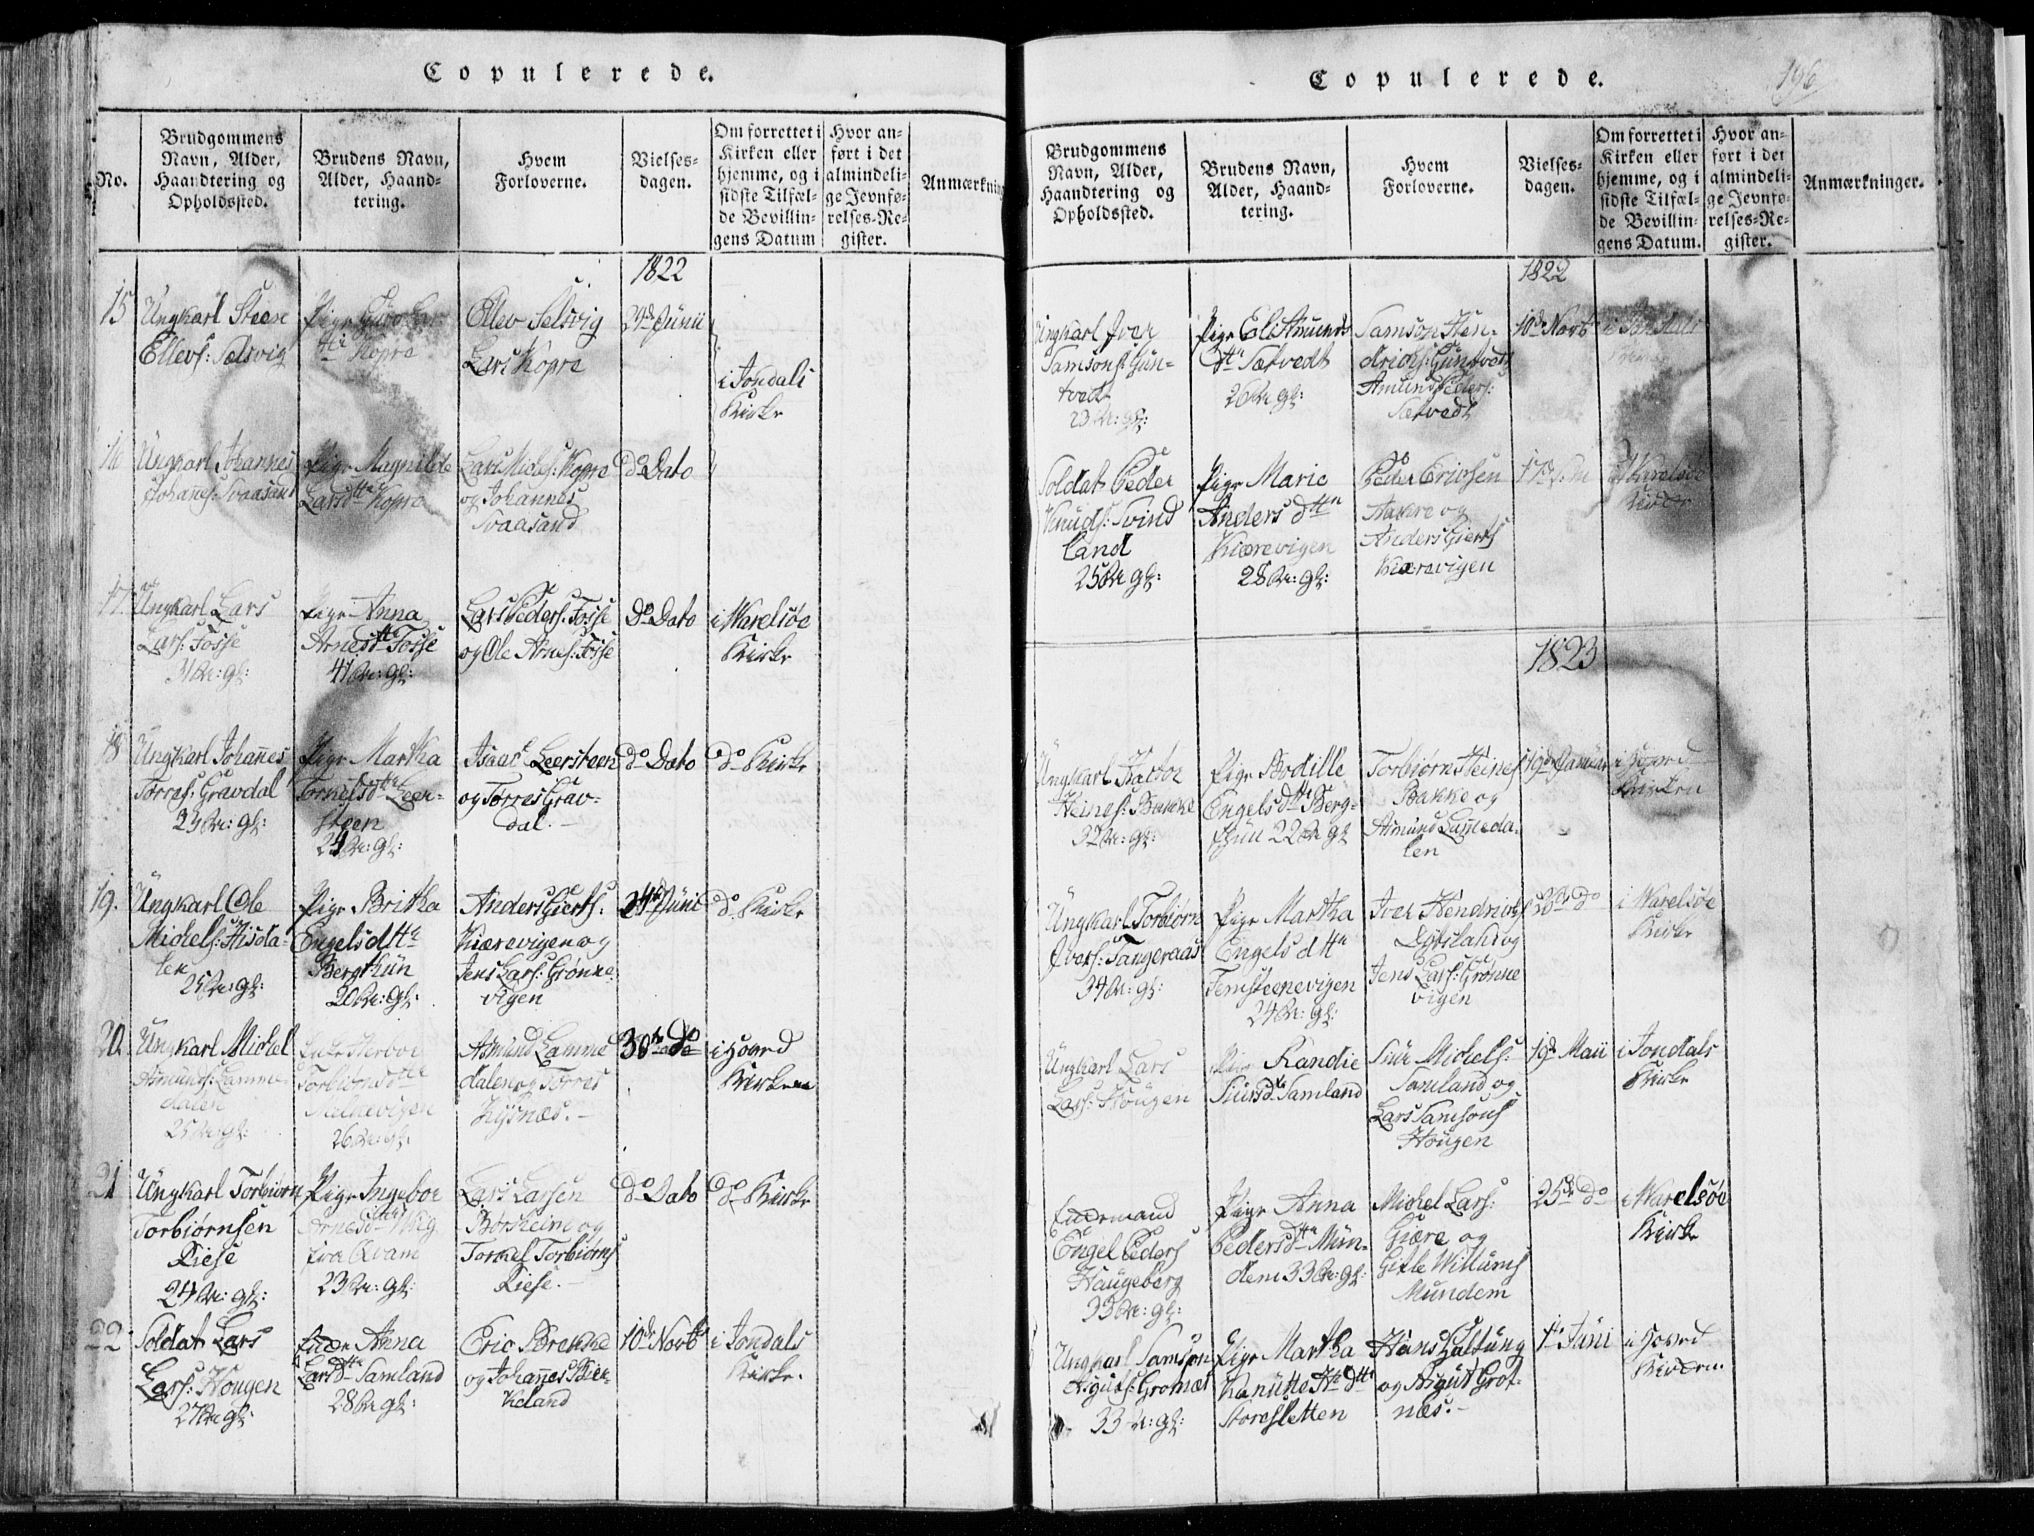 Copulerede.
No.
Brudgommens
Navn, Alder,
Haandtering og
Opholdssted.
Brudens Navn,
Alder, Haand-
tering.
Hvem
Forloverne.
Vielses-
dagen.
Om forrettet i
Kirken eller
hjemme, og i
sidste Tilfæl-
de Bevillin-
gens Datum
Hvor an-
ført i det
almindeli-
ge Jevnfø-
relses-Re-
gister.
Anmærkning
1822
15
Ungkarl Steen
Ellevs: Selsvig
Pige
Kopre
Ellev Selsvig
Lars Kopre
29de Junii
i Jondals
Kirke
16
Ungkarl Johannes
Johanes: Svaasand
Pige Magnilde
Larsdtr Kopre
Lars Michels: Kopre
og Johannes
Svaasand
do Dato
17.
Ungkarl Lars
Lars: Fosse
31 Ar: gl:
Pige Anna
Arnesdtr Fosse
41 Ar: gl:
Lars Peders: Fosse
og Ole Arnes: Fosse
Do Dato
i Warelsøe
Kirke
18
Ungkarl Johannes
Torres: Gravdal
23 Ar: gl:
Pige Martha
Leer-
steen
24 Ar: gl:
Isaac Leersteen
og Torres Grav-
dal.-
do Dato
do Kirke
19.
Ungkarl Ole
Michels: Hisda-
len
25 Ar: gl:
Pige Britha
Engelsdttr
Bergthün
20 Ar: gl:
Anders Gierts:
Kiærevigen og
Jens Lars: Grønne-
vigen
24de Junii
do Kirke
20
Ungkarl Michel
Asmunds: Lamme-
dalen
25 Ar: gl:
Torbiørnsdtr
26 Ar: gl:
Asmund Lamme
dalen og Torres
Hysnæs.-
30te do
i Hoved
Kirken
21
Ungkarl Torbiørn
Torbiørnsen
Riese
24 Ar: gl:
Pige Ingebor
Arnesdtr Wiig
fra Qvam
23 Ar: gl:
Lars Larsen
Børsheim og
Torkel Torbiørns
Riese.-
do Dato
do Kirke
22
Soldat Lars
Lars: Hougen
27 Ar gl:
Anna
Larsdtr Samland
28 Ar gl:
Eric Brekke
og Johannes Bier-
Keland
10de Novb
i Jondals
Kirke.
Copulerede.
196
Brudgommens
Navn, Alder,
Haandtering og
Opholdssted.
Brudens Navn,
Alder, Haand-
tering.
Hvem
Forloverne.
Vielses-
dagen.
Om forrettet i
Kirken eller
hjemme, og i
sidste Tilfæl-
de Bevillin-
gens Datum.
Hvor an-
ført i det
almindeli-
ge Jevnfø-
relses-Re-
gister.
Anmærkninger.
1822
Ungkarl Iver
Samsons: Gun-
tvedt
23 Ar: gl:
Pige Eli Amunds
dtr Sætvedt
26 Ar gl:
Samson Hen-
drichs: Guntvedt
Amund Peders:
Sætvedt
10de Novb
i Jondals
Soldat Peder
Knuds: Svind
land
25 Ar gl:
Pige Marie
Anders dttr
Kiærevigen
28 Ar: gl:
Peder Erichsen
og
Anders Gierts
Kiærevigen
17de
i Warelsøe
Kirke
1823
Ungkarl
Heines: Bakke
32 Ar: gl:
Pige Bodille
Engelsdtr Berg-
thün 22 Ar gl
Torbiørn Heines
Bakke og
Asmund Lammeda-
len
19de Januar
i Hoved
Kirken
Ungkarl Torbiørn
Ivers: Tangeraas
34 Ar: gl:
Pige Martha
Engelsdttr
Femsteenevigen
24 Ar: gl:
Iver Hendrichs
og
Jens Lars: Grønne
vigen
do
i Warelsøe
Kirke
Ungkarl Lars
Lars: Hougen
Pige Randie
Siursdtr Samland
Siur Michels:
Samland og
Lars Samsons
Hougen
19de Maii
i Jondals
Kirke
Enkemand
Engel Peders
Haugeberg
33 Ar: gl:
Pige Anna
Pedersdtr Mun-
dem 33 Ar: gl:
Michel Lars:
Giære og
Gitle Willums
Mundem
25de do
i Warelsøe
Kirke
Ungkarl Samson
Aiguts: Gromæt
33 Ar: gl:
Pige Martha
Kanutte H: dttr
Storesletten
Hans Haltung
og Aigut Grot-
næs.-
1te Juni
i Hoved
Kirken